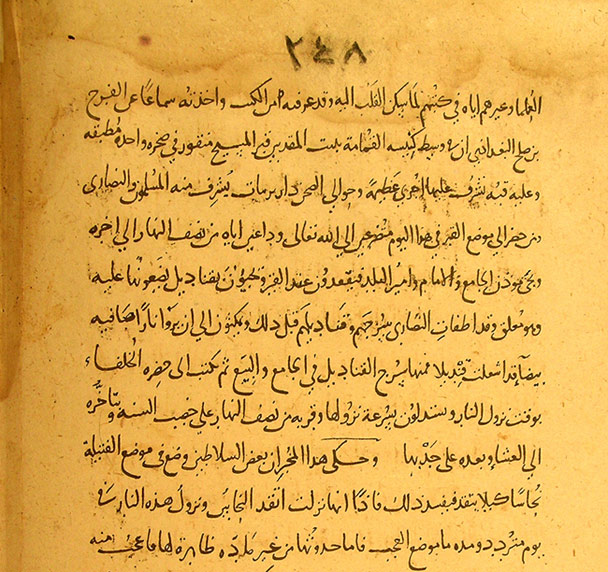 ٢٤٨
العلما وغيرهم اياه في كتبهم لما سكن القلب اليه وقد عرفته من الكتب واخذته سماعًا عن الفرج
بن صلح البغدادي ان في وسط كنيسه القمامة ببيت المقدس قبر المسيح منقور في صخره واحدة مطبقه
وعليه قبه تشرف عليها اخرى عظيمة وحوالي الصخر يشرف منه المسلمون والنصارى
ومن حضر الي موضع القبر في هذا اليوم متضرعين الي الله تعالى وداعين اياه من نصف النهار الي اخره
ويجي موذن الجامع والامام وامير البلد فيقعدون عند القبر ويجيون بقناديل يضعونها عليه
وهو مغلق وقد اطفات النصارى سرجهم وقناديلهم قبل ذلك ويمكثون الي ان يروا نارًا صافيه
بيضا قد اشعلت قنديلا فمنها يسرج القناديل في الجامع والبيع ثم يكتب الى حضره الخلفاء
بوقت نزول النار ويستدلون بسرعة نزولها وقربه من نصف النهار علي خصب السنه وبتاخره
الي العشاء وبعده على جدبها وحكى هذا المخبر ان بعض السلاطين وضع في موضع الفتيلة
نحاسا كيلا يتقد فيفسد ذلك فاذا انها نزلت اتقد النحاس ونزول هذه النار في
يوم متردد ومده ما موضع العجب فاما حدوثها من غير مادة ظاهرة لها فاعجب منه